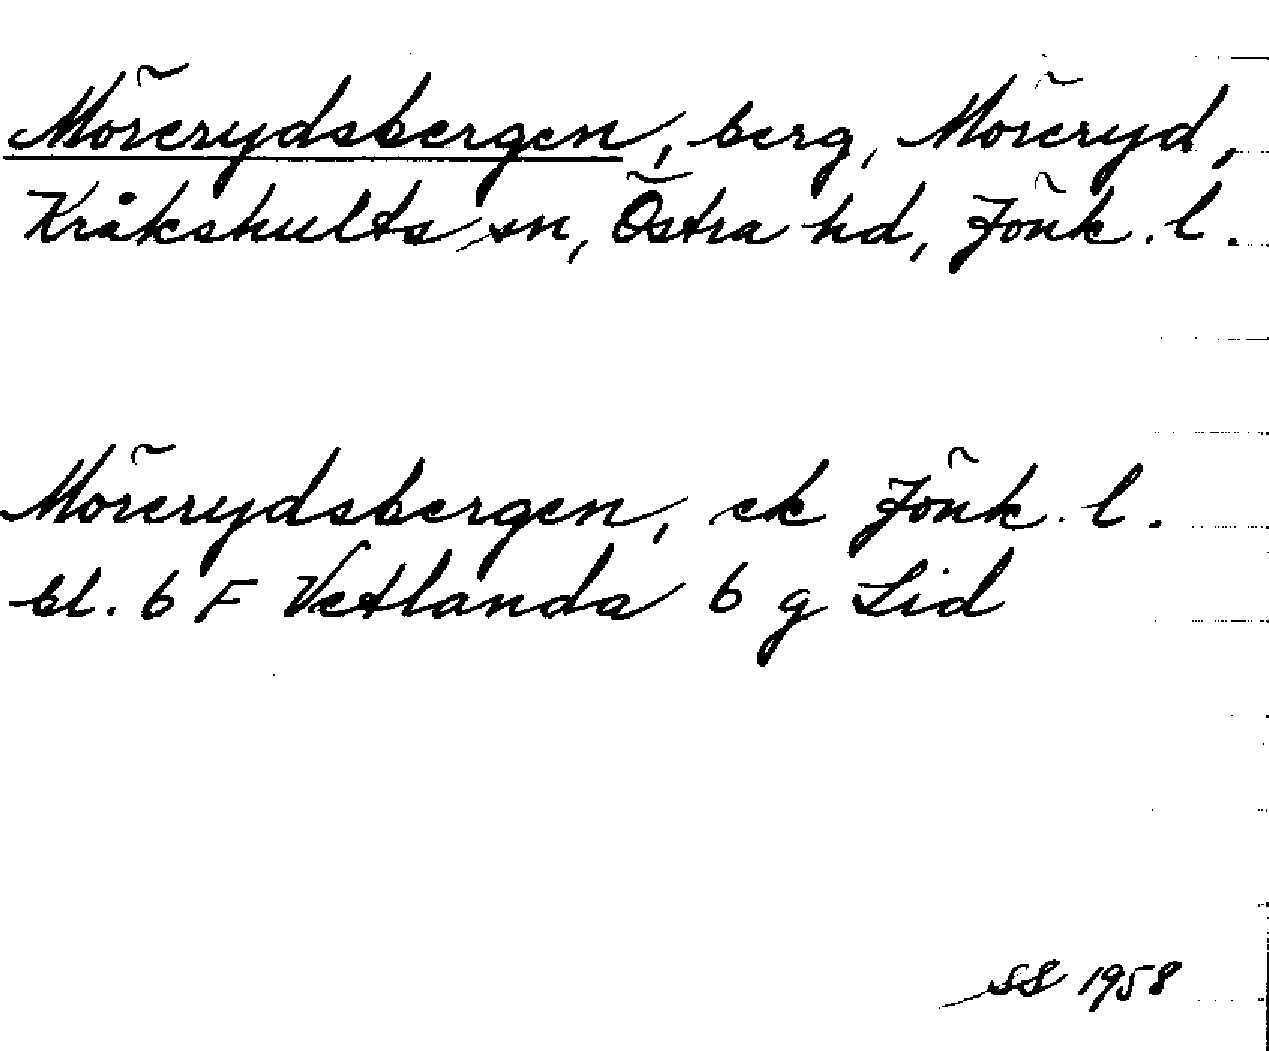 Mörerydsbergen, berg, Möreryd,
Kråkshults sn, Östra hd, Jönk. l.
Mörerydsbergen, ek Jönk. l.
bl. 6 F Vetlanda 6 g Lid
SS 1958